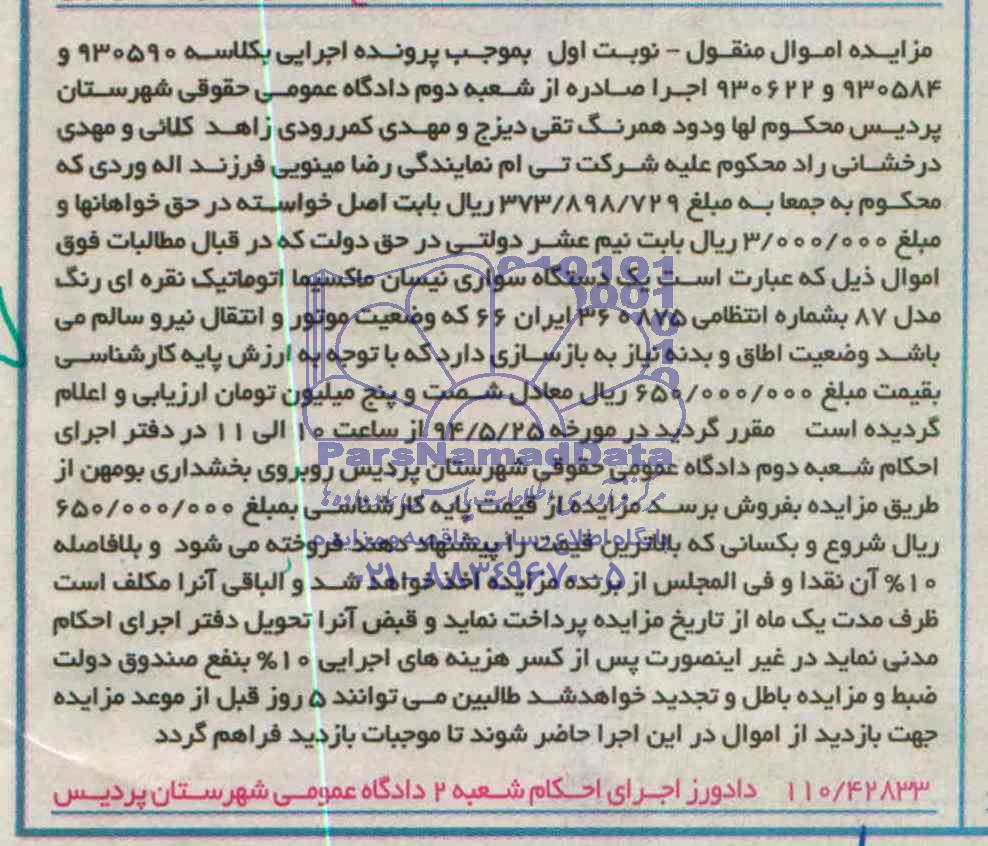 مزایده اموال منقول - نوبت اول بموجب پرونده اجرایی بکلاسه ۹۳۰۵۹۰ و
۹۳۰۵۸۴ و ۹۳۰۶۲۲ اجرا صادره از شعبه دوم دادگاه عمومی حقوقی شهرستان
پردیس محکوم لها ودود همرنگ تقی دیزج و مهدی کمررودی زاهد کلائی و مهدی
درخشانی راد محکوم علیه شرکت تی ام نمایندگی رضا مینویی فرزند اله وردی که
محکوم به جمعا به مبلغ ۳۷۳/۸۹۸/۷۲۹ ریال بابت اصل خواسته در حق خواهانها و
مبلغ ۳/۰۰۰/۰۰۰ ریال بابت نیم عشر دولتی در حق دولت که در قبال مطالبات فوق
اموال ذیل که عبارت است یک دستگاه سواری نیسان ماکسیما اتوماتیک نقره ای رنگ
مدل ۸۷ بشماره انتظامی ۸۷۵ ه ۳۶ ایران ۶۶ که وضعیت موتور و انتقال نیرو سالم می
باشد وضعیت اطاق و بدنه نیاز به بازسازی دارد که با توجه به ارزش پایه کارشناسی
بقیمت مبلغ ۶۵۰/۰۰۰/۰۰۰ ریال معادل شصت و پنج میلیون تومان ارزیابی و اعلام
گردیده است مقرر گردید در مورخه ۹۴/۵/۲۵ از ساعت ۱۰ الی ۱۱ در دفتر اجرای
احکام شعبه دوم دادگاه عمومی حقوقی شهرستان پردیس روبروی بخشداری بومهن از
طریق مزایده بفروش برسد مزایده از قیمت پایه کارشناسی بمبلغ ۶۵۰/۰۰۰/۰۰۰
ریال شروع و بکسانی که بالاترین قیمت را پیشنهاد دهند فروخته می شود و بلافاصله
۱۰% آن نقدا و فی المجلس از برنده مزایده اخذ خواهد شد و الباقی آنرا مکلف است
ظرف مدت یک ماه از تاریخ مزایده پرداخت نماید و قبض آنرا تحویل دفتر اجرای احکام
مدنی نماید در غیر اینصورت پس از کسر هزینه های اجرایی ۱۰% بنفع صندوق دولت
ضبط و مزایده باطل و تجدید خواهدشد طالبین می توانند ۵ روز قبل از موعد مزایده
جهت بازدید از اموال در این اجرا حاضر شوند تا موجبات بازدید فراهم گردد
۱۱۰/۴۲۸۳۳ دادورز اجرای احکام شعبه ۲ دادگاه عمومی شهرستان پردیس
ParsNamadData
پایگاه اطلاع رسانی مناقصه و مزایده
۰۲۱-۸۸۳۴۹۶۷۰-۵